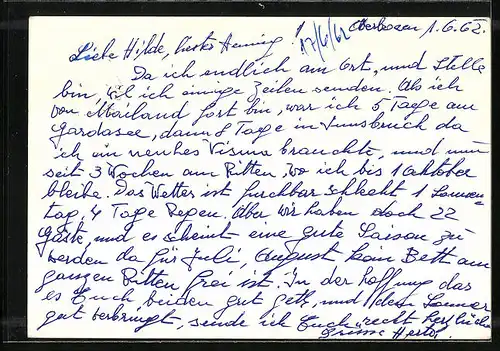 Oberbozen 1.6.62.
17/6/62
Liebe Hilde, lieber Henning!
Da ich endlich am Ort, und Stelle
bin, will ich einige Zeilen senden. Als ich
von Mailand fort bin, war ich 5 Tage am
Gardasee, dann 8 Tage in Innsbruck da
ich ein neuhes Visum brauchte, und nun
seit 3 Wochen am Ritten, wo ich bis 1 Oktober
bleibe. Das Wetter ist furchbar schlecht 1 Sonnen-
tag, 4 Tage Regen. Aber wir haben doch 22
Gäste, und es scheint eine gute Saison zu
werden da für Juli, August kein Bett am
ganzen Ritten frei ist. In der Hoffnung das
es Euch beiden gut geht, und den Sommer
gut verbringt, sende ich Euch recht herzliche
Grüsse